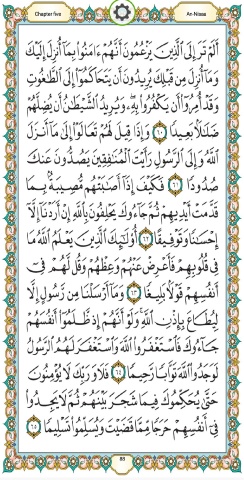 Chapter five
An-Nissa
أَلَمْ تَرَ إِلَى ٱلَّذِينَ يَزْعُمُونَ أَنَّهُمْ ءَامَنُوا۟ بِمَآ أُنزِلَ إِلَيْكَ
وَمَآ أُنزِلَ مِن قَبْلِكَ يُرِيدُونَ أَن يَتَحَاكَمُوٓا۟ إِلَى ٱلطَّٰغُوتِ
وَقَدْ أُمِرُوٓا۟ أَن يَكْفُرُوا۟ بِهِۦ وَيُرِيدُ ٱلشَّيْطَٰنُ أَن يُضِلَّهُمْ
ضَلَٰلًۢا بَعِيدًا ٦٠ وَإِذَا قِيلَ لَهُمْ تَعَالَوْا۟ إِلَىٰ مَآ أَنزَلَ
ٱللَّهُ وَإِلَى ٱلرَّسُولِ رَأَيْتَ ٱلْمُنَٰفِقِينَ يَصُدُّونَ عَنكَ
صُدُودًا ٦١ فَكَيْفَ إِذَآ أَصَٰبَتْهُم مُّصِيبَةٌۢ بِمَا
قَدَّمَتْ أَيْدِيهِمْ ثُمَّ جَآءُوكَ يَحْلِفُونَ بِٱللَّهِ إِنْ أَرَدْنَآ إِلَّآ
إِحْسَٰنًا وَتَوْفِيقًا ٦٢ أُو۟لَٰٓئِكَ ٱلَّذِينَ يَعْلَمُ ٱللَّهُ مَا
فِى قُلُوبِهِمْ فَأَعْرِضْ عَنْهُمْ وَعِظْهُمْ وَقُل لَّهُمْ فِىٓ
أَنفُسِهِمْ قَوْلًۢا بَلِيغًا ٦٣ وَمَآ أَرْسَلْنَا مِن رَّسُولٍ إِلَّا
لِيُطَاعَ بِإِذْنِ ٱللَّهِ وَلَوْ أَنَّهُمْ إِذ ظَّلَمُوٓا۟ أَنفُسَهُمْ
جَآءُوكَ فَٱسْتَغْفَرُوا۟ ٱللَّهَ وَٱسْتَغْفَرَ لَهُمُ ٱلرَّسُولُ
لَوَجَدُوا۟ ٱللَّهَ تَوَّابًا رَّحِيمًا ٦٤ فَلَا وَرَبِّكَ لَا يُؤْمِنُونَ
حَتَّىٰ يُحَكِّمُوكَ فِيمَا شَجَرَ بَيْنَهُمْ ثُمَّ لَا يَجِدُوا۟
فِىٓ أَنفُسِهِمْ حَرَجًا مِّمَّا قَضَيْتَ وَيُسَلِّمُوا۟ تَسْلِيمًا ٦٥
88